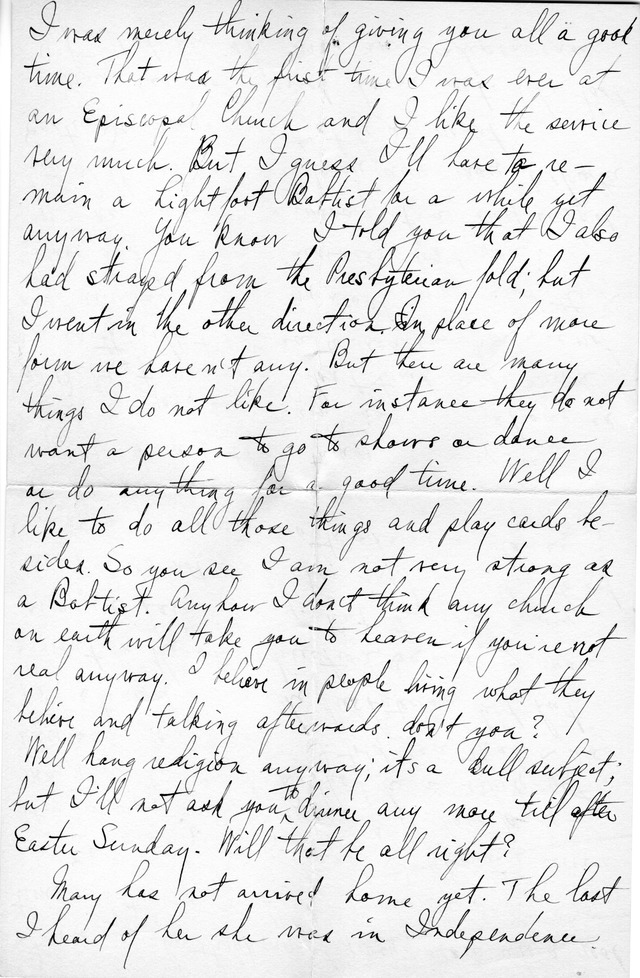 I was merely thinking of giving you all a good
time. That was the first time I was ever at
an Episcopal Church and I like the service
very much. But I guess I'll have to re-
main a Lightfoot Baptist for a while yet
anyway. You know I told you that I also
had strayed from the Presbyterian fold; but
I went in the other direction. In place of more
form we haven't any. But there are many
things I do not like. For instance they do not
want a person to go to shows or dance
or do anything for a good time. Well I
like to do all those things and play cards be-
sides. So you see I am not very strong as
a Babtist. Anyhow I don't think any church
on earth will take you to heaven if you're not
real anyway. I believe in people living what they
believe and talking afterwards. don't you?
Well hang religion anyway; its a dull subject;
but I'll not ask you to dinner any more till after
Easter Sunday. Will that be all right?
Mary has not arrived home yet. The last
I heard of her she was in Independence.